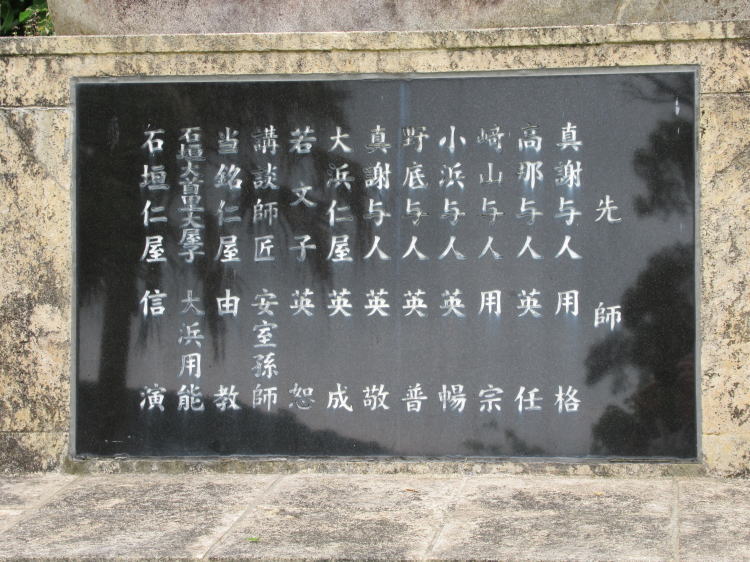 先師
真謝与人 用格
高那与人 英任
崎山与人 用宗
小浜与人 英暢
野底与人 英普
真謝与人 英敬
大浜仁屋 英成
若文子 英恕
講談師匠 安室孫師
当銘仁屋 由教
石垣大首里大屋子 大浜用能
石垣仁屋 信演